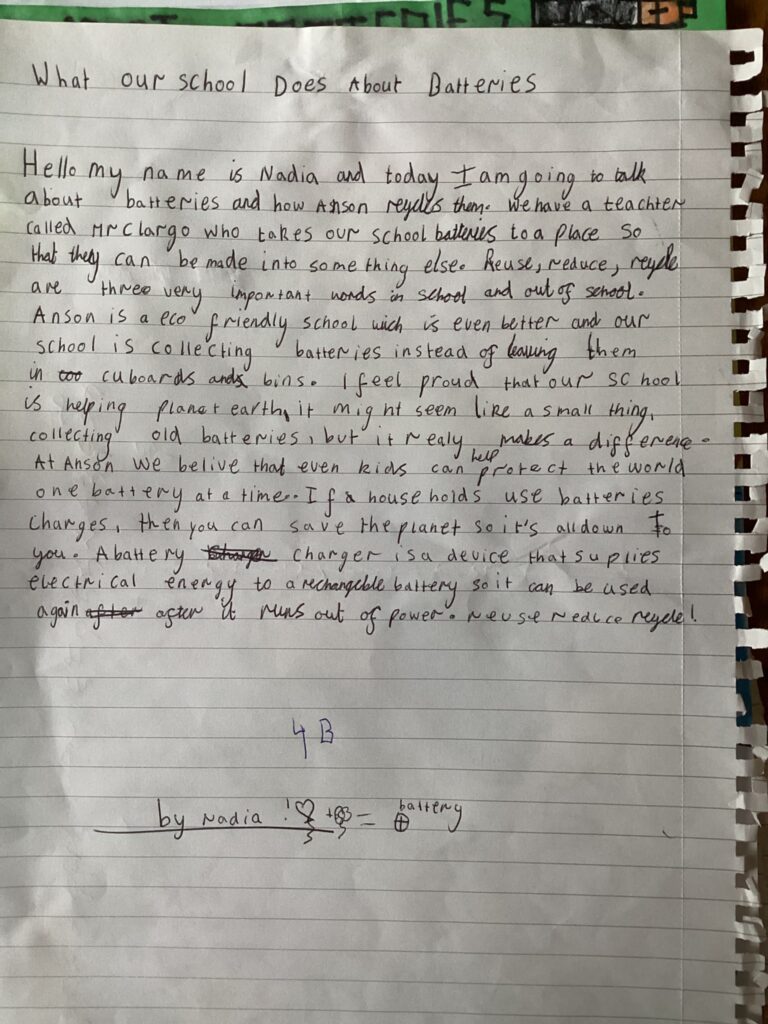 What our school Does About Batteries
Hello my name is Nadia and today I am going to talk
about batteries and how Anson reycles them. We have a teachter
called Mr Clargo who takes our school batteries to a place so
that they can be made into something else. Reuse, reduce, reycle
are three very important words in school and out of school.
Anson is a eco friendly school wich is even better and our
school is collecting batteries instead of leaving them
in cuboards and bins. I feel proud that our school
is helping planet earth, it might seem like a small thing,
collecting old batteries, but it realy makes a difference.
At Anson we belive that even kids can help protect the world
one battery at a time.. If a households use batteries
charges, then you can save the planet so it's all down to
you. A battery charger is a device that suplies
electrical energy to a rechargeble battery so it can be used
again after it runs out of power. reuse reduce reycle!
4B
by Nadia ! + = battery